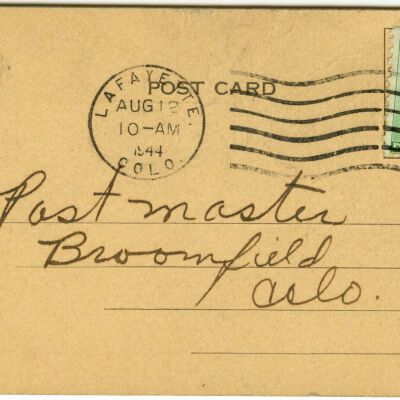 POST CARD
LAFAYETTE.
AUG 12
10-AM
1944
COLO.
Postmaster
Broomfield
Colo.